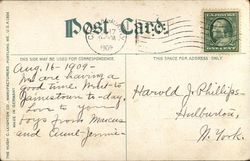 Post Card.
17
1909
THIS SIDE MAY BE USED FOR CORRESPONDENCE.
THIS SPACE FOR ADDRESS ONLY.
Aug. 16 - 1909 -
We are having a
good time. Went to
Jamestown to-day
Love to you
boys from Marcus
and Aunt Jennie -
Harold J. Phillips -
Hulburton,
N. York.
THE HUGH C. LEIGHTON CO., MANUFACTURERS, PORTLAND, ME. U.S.A.